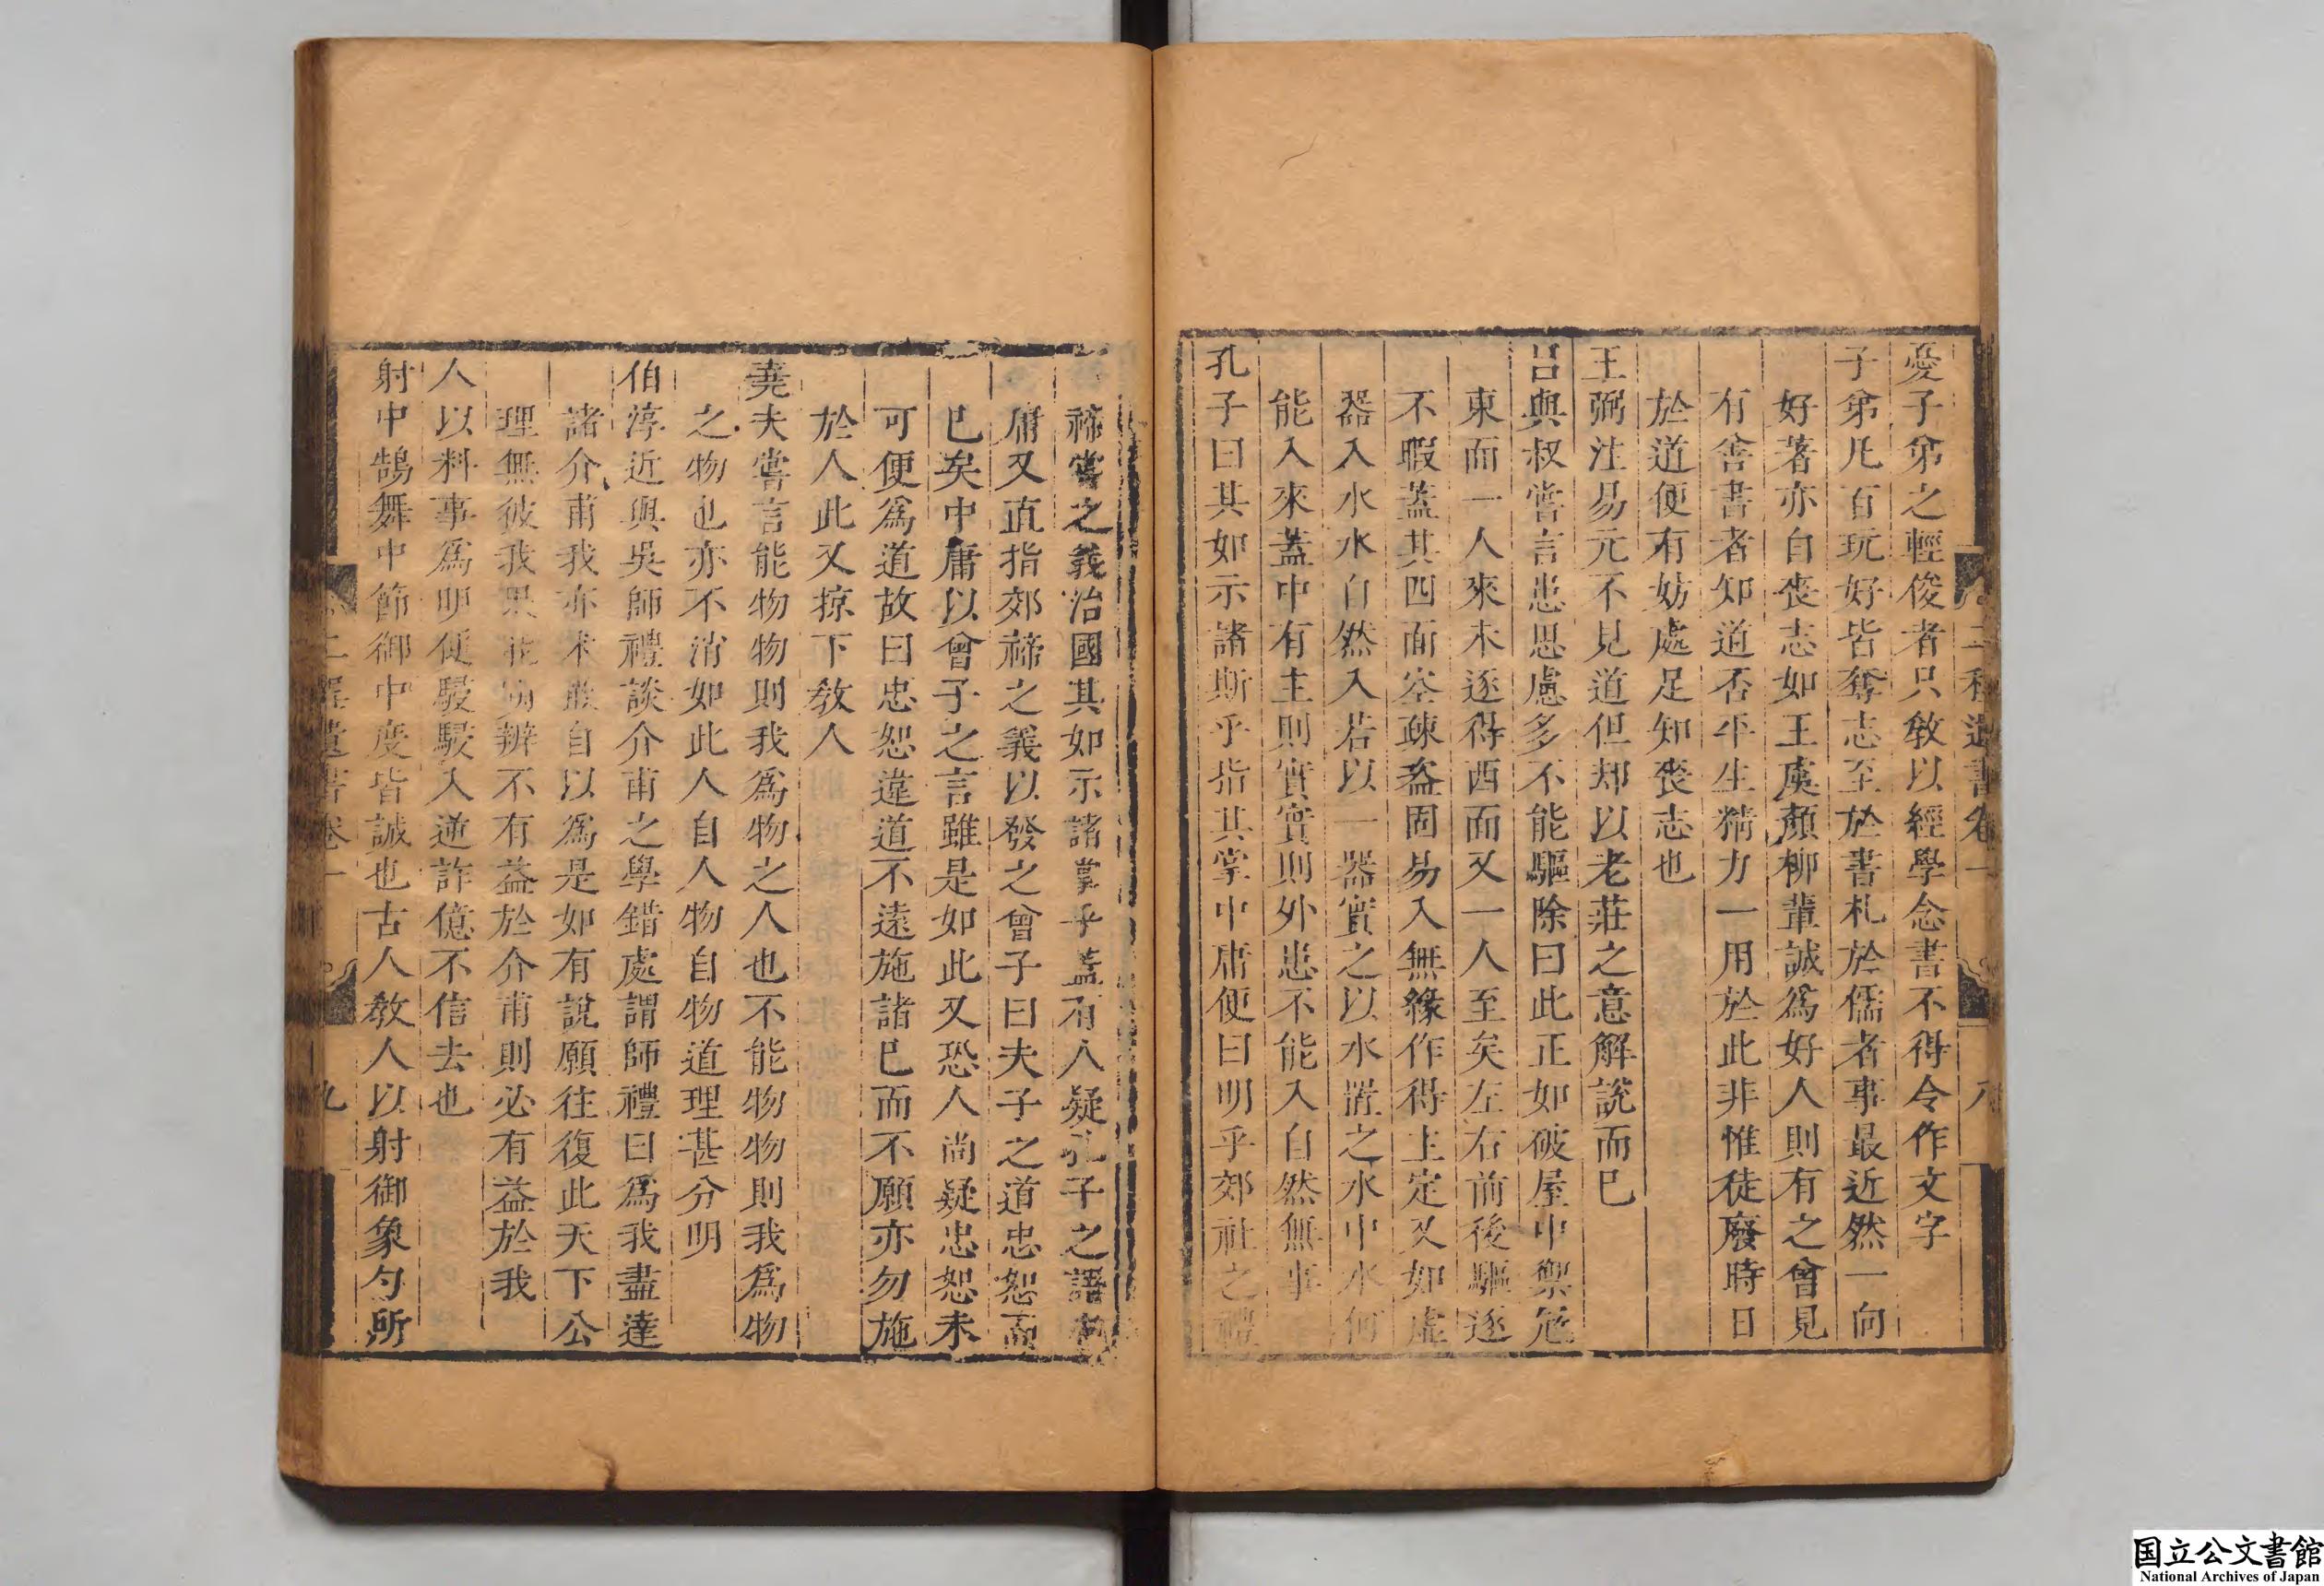 二程遺書卷一
八
憂子弟之輕俊者只敎以經學念書不得令作文字
子弟凡百玩好皆奪志至於書札於儒者事最近然一向
好著亦自喪志如王虞顏柳輩誠爲好人則有之曾見
有善書者知道否平生精力一用於此非惟徒廢時日
於道便有妨處足知喪志也
王弼注易元不見道但却以老莊之意解說而已
呂與叔嘗言患思慮多不能驅除曰此正如破屋中禦冦
東面一人來未逐得西面又一人至矣左右前後驅逐
不暇蓋其四面空疎盗固易入無緣作得主定又如虛
器入水水自然入若以一器實之以水置之水中水何
能入來蓋中有主則實實則外患不能入自然無事
孔子曰其如示諸斯乎指其掌中庸便曰明乎郊社之禮
禘嘗之義治國其如示諸掌乎蓋有人疑孔子之語
庸又直指郊禘之義以發之曾子曰夫子之道忠恕而
已矣中庸以曾子之言雖是如此又恐人尚疑忠恕未
可便爲道故曰忠恕違道不遠施諸已而不願亦勿施
於人此又掠下敎人
堯夫嘗言能物物則我爲物之人也不能物物則我爲物
之物也亦不消如此人自人物自物道理甚分明
伯淳近與吳師禮談介甫之學錯處謂師禮曰爲我盡達
諸介甫我亦未敢自以爲是如有說願往復此天下公
理無彼我果能明辨不有益於介甫則必有益於我
人以料事爲明便駸駸入逆詐億不信去也
射中鵠舞中節御中度皆誠也古人敎人以射御象勺所
二程遺書卷一
九
国立公文書館
National Archives of Japan